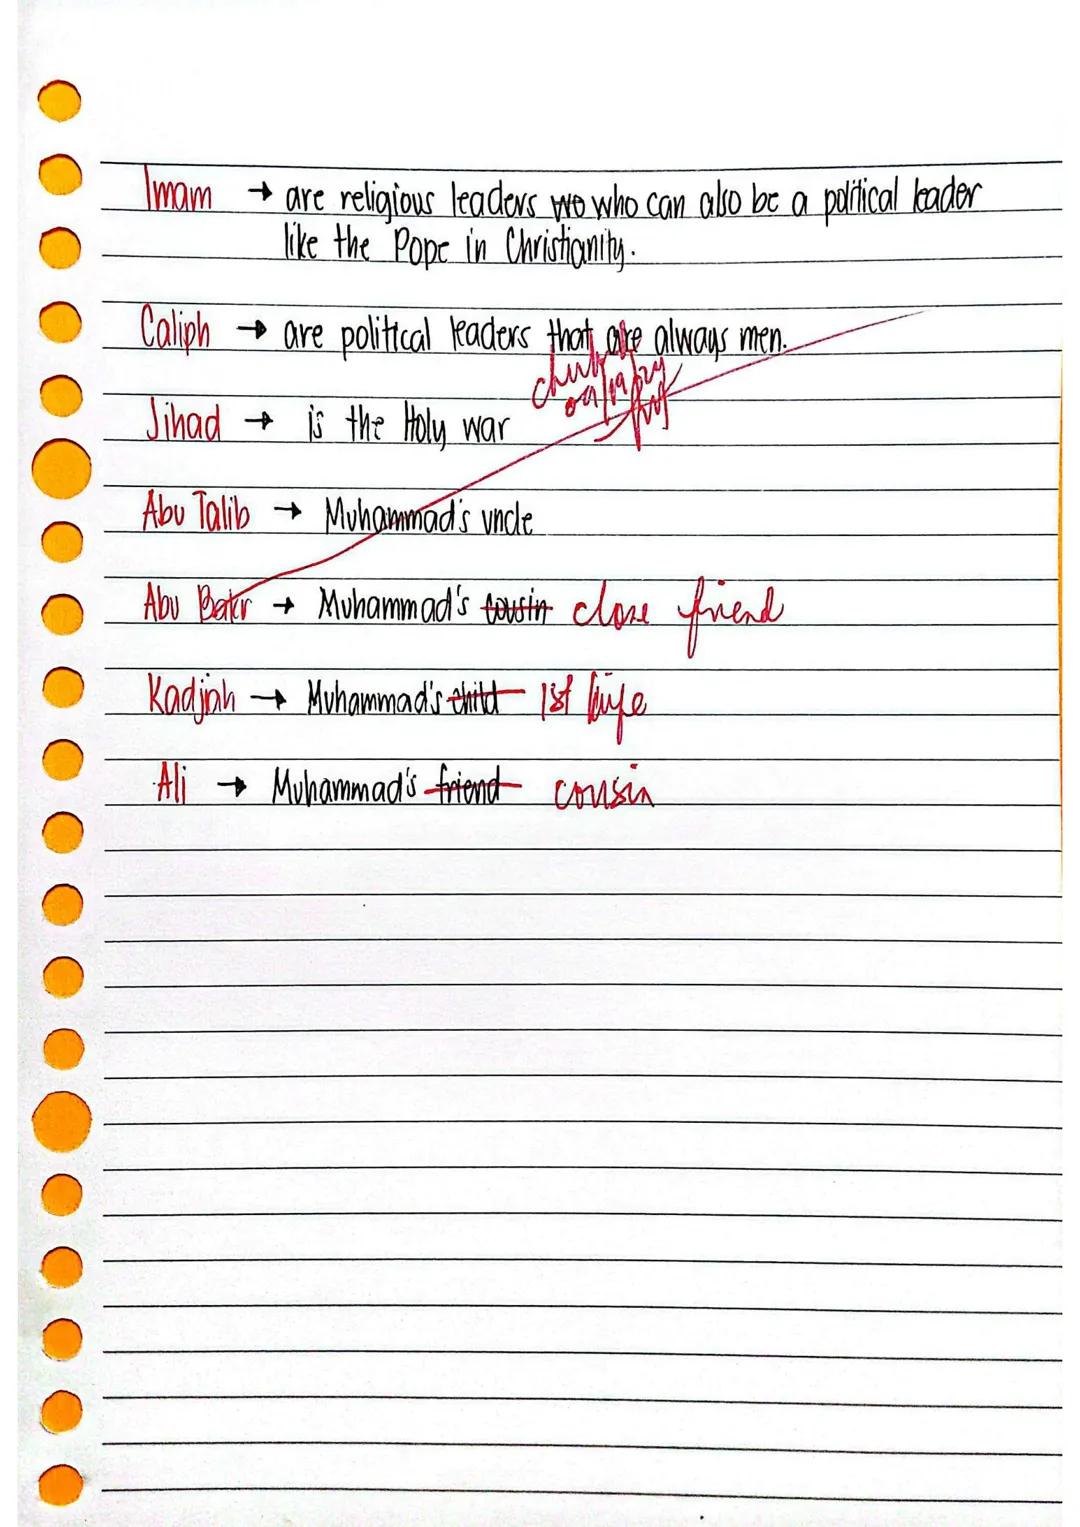 Imam → are religious leaders wo who can also be a political leader
like the Pope in Christianity.
Caliph → are political leaders that are always men.
Jihad → is the Holy war
Abu Talib → Muhammad's uncle
Abu Bakr → Muhammad's cousin close friend
Kadjiah → Muhammad's child 1st wife
Ali → Muhammad's friend cousin